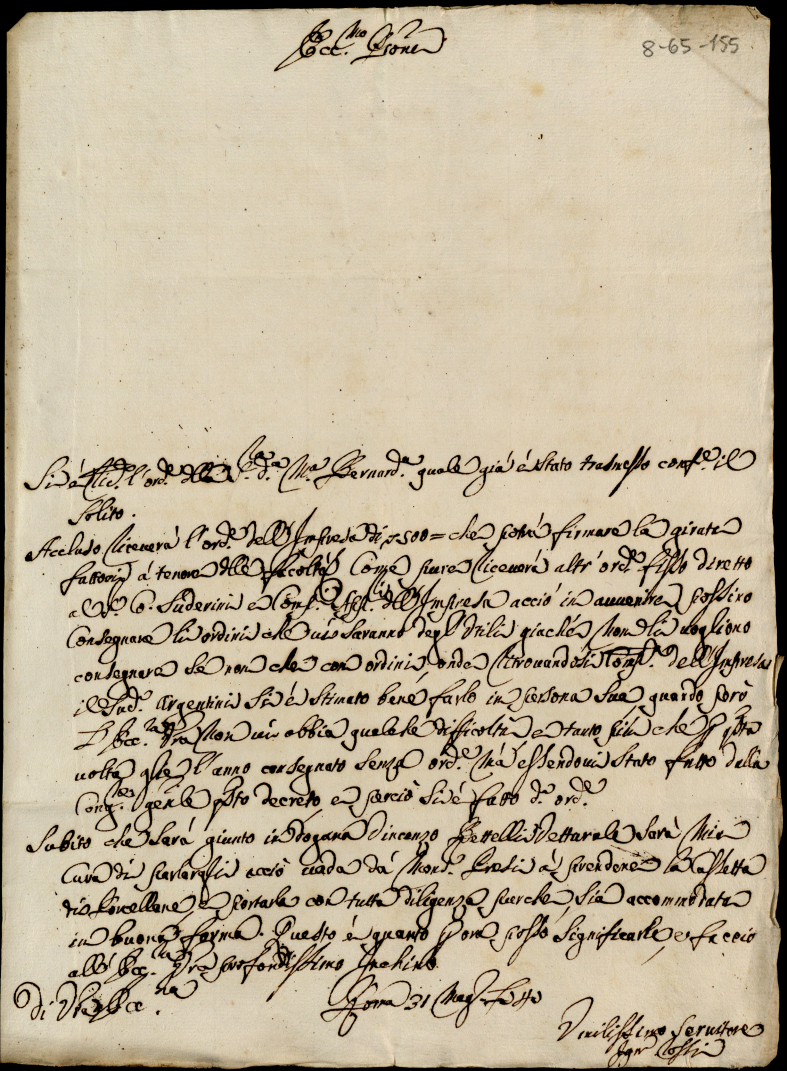 Ecc.mo Prone
8-65-155
Si è Ric. l'ord.e della S.ra d.a M.a Bernard.a quale già è stato trasmesso conf.e il
solito.
Accluso riceverà l'ord.e dell'Impresa di 500= che potrà firmare la girata
fattovi à tenore delle facoltà. Come pure riceverà altr'ord.e fisso diretto
a Suderini e Comp. dell'Impresa acciò in avvenire possino
consegnare li ordini che vi saranno degl'Utili giachè non li vogliono
consegnare se non che con ordini, onde ritrovandosi Comp. dell'Impresa
il Sud.o Argentini si è stimato bene farlo in persona sua quando però
l'Ecc.za Vra non vi abbia qualche difficoltà e tanto più che p. q'sta
volta glie l'anno consegnato senza ord.e Mà essendovi stato fatto dalla
Cong.ne gñle q'sto decreto, e perciò si è fatto d.o ord.e
Subito che sarà giunto in Dogana Vincenzo Bettelli Vetturale sarà mia
cura di parlargli acciò vada dà Mons.r à prendere la Cassetta
di Porcellene e portarla con tutta diligenza purche sia accommodata
in buona forma. Questo è quanto p ora posso significarle, e faccio
all'Ecc.za Vra profondissimo Inchino.
Di Vra Ecc.za
Roma 31 Mag.
Umilissimo Servitore